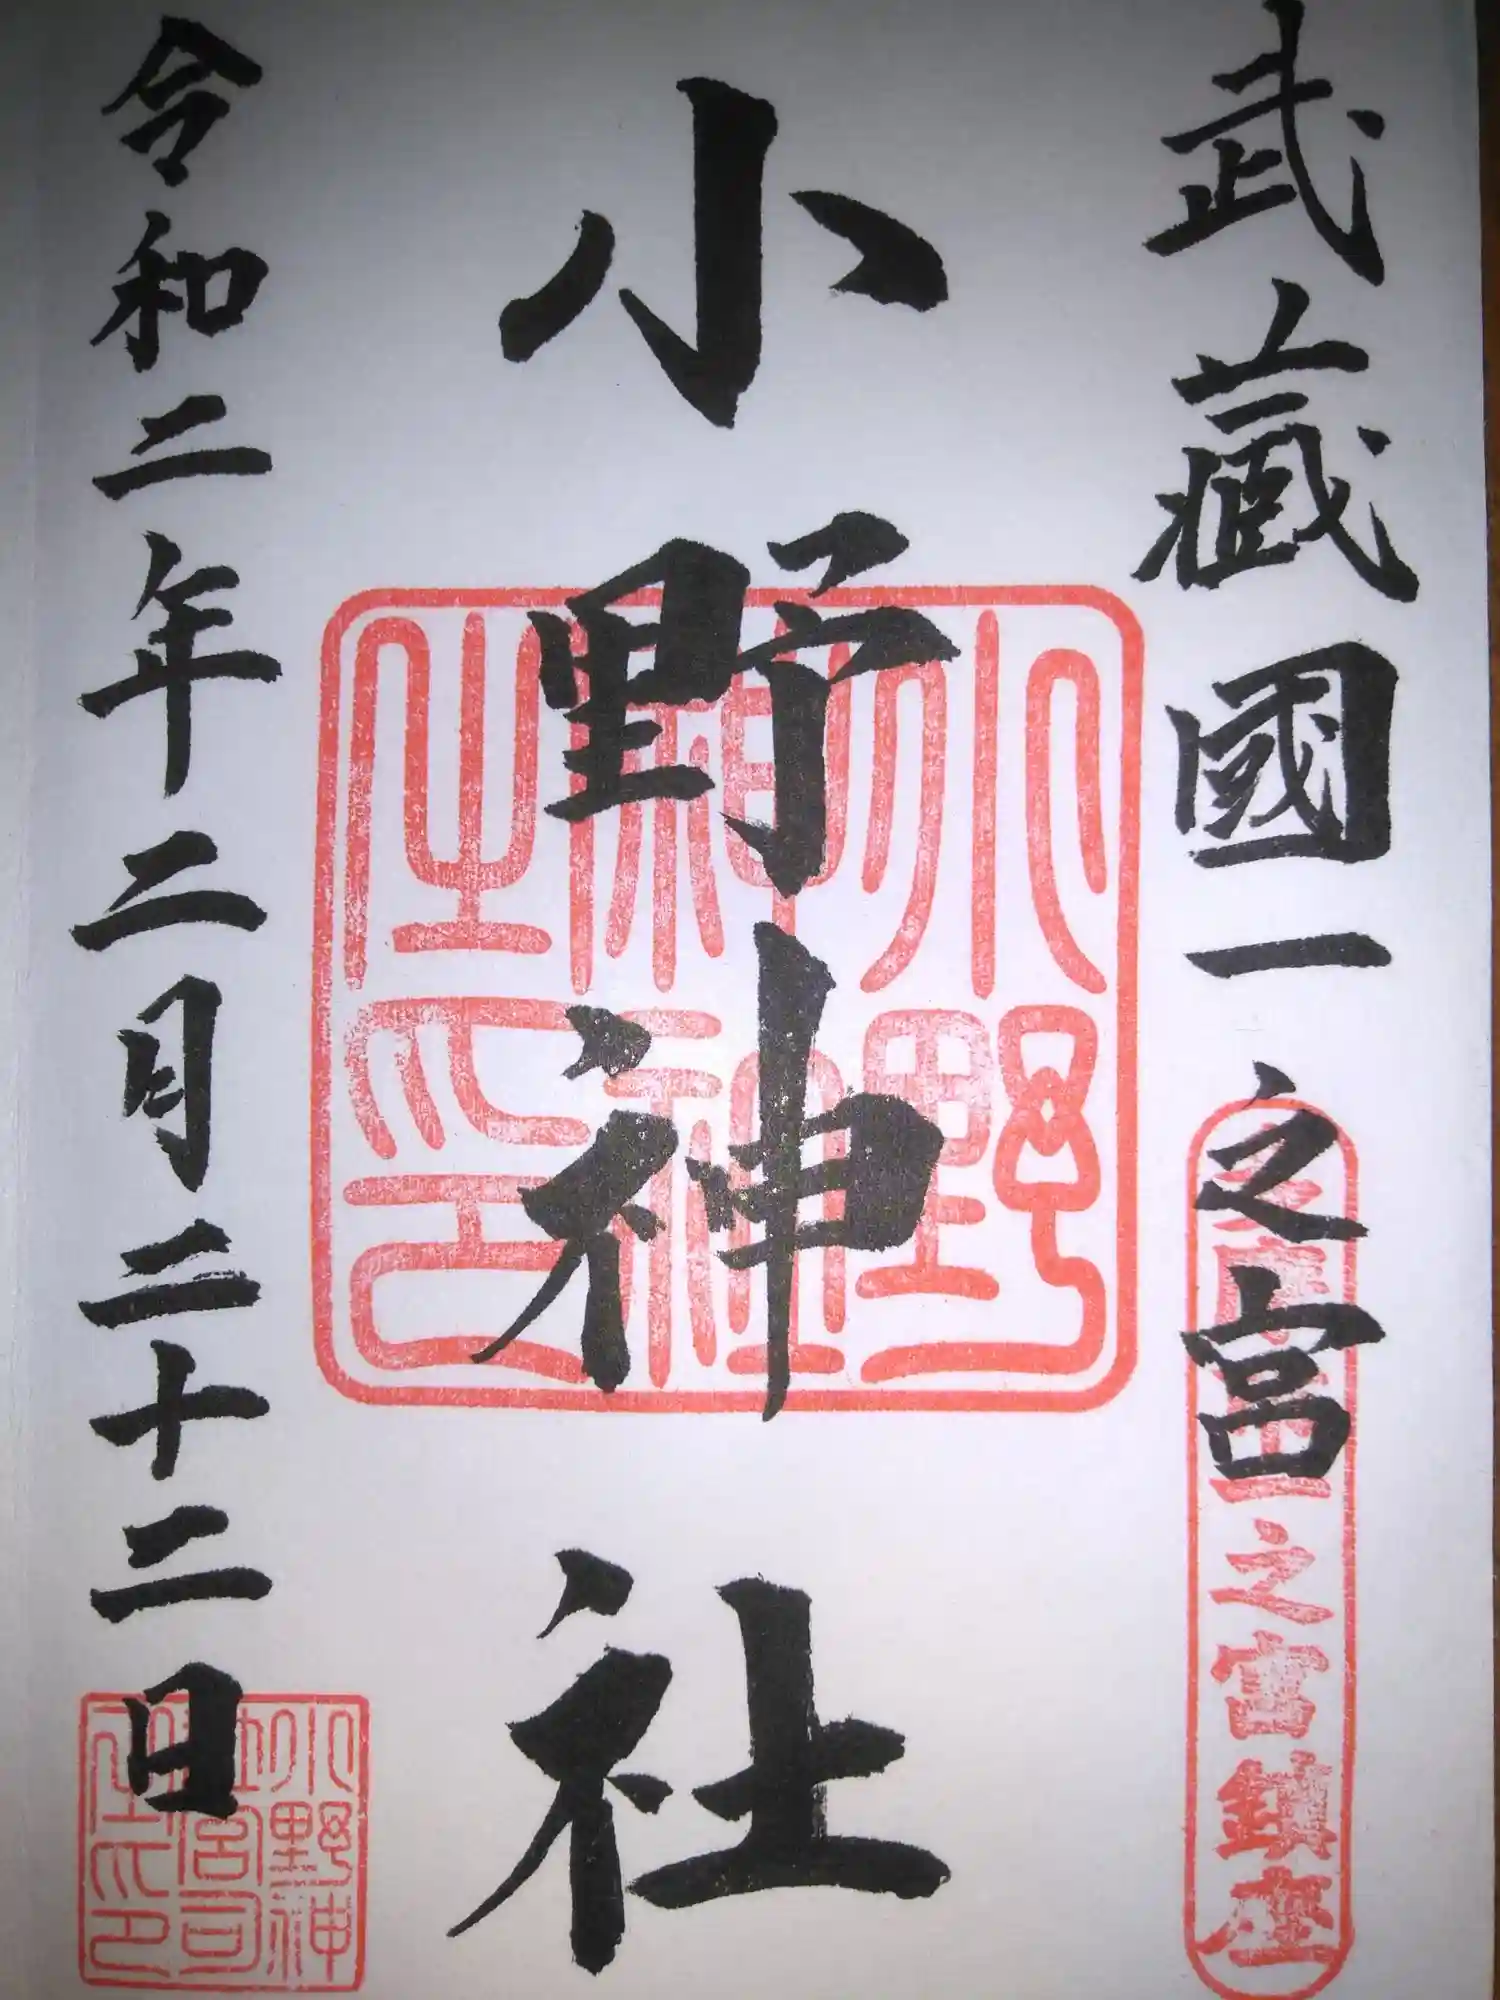 武蔵國一之宮
之宮鎮座
小野神社
小野神社之印
令和二年二月二十二日
小野神社宮司之印